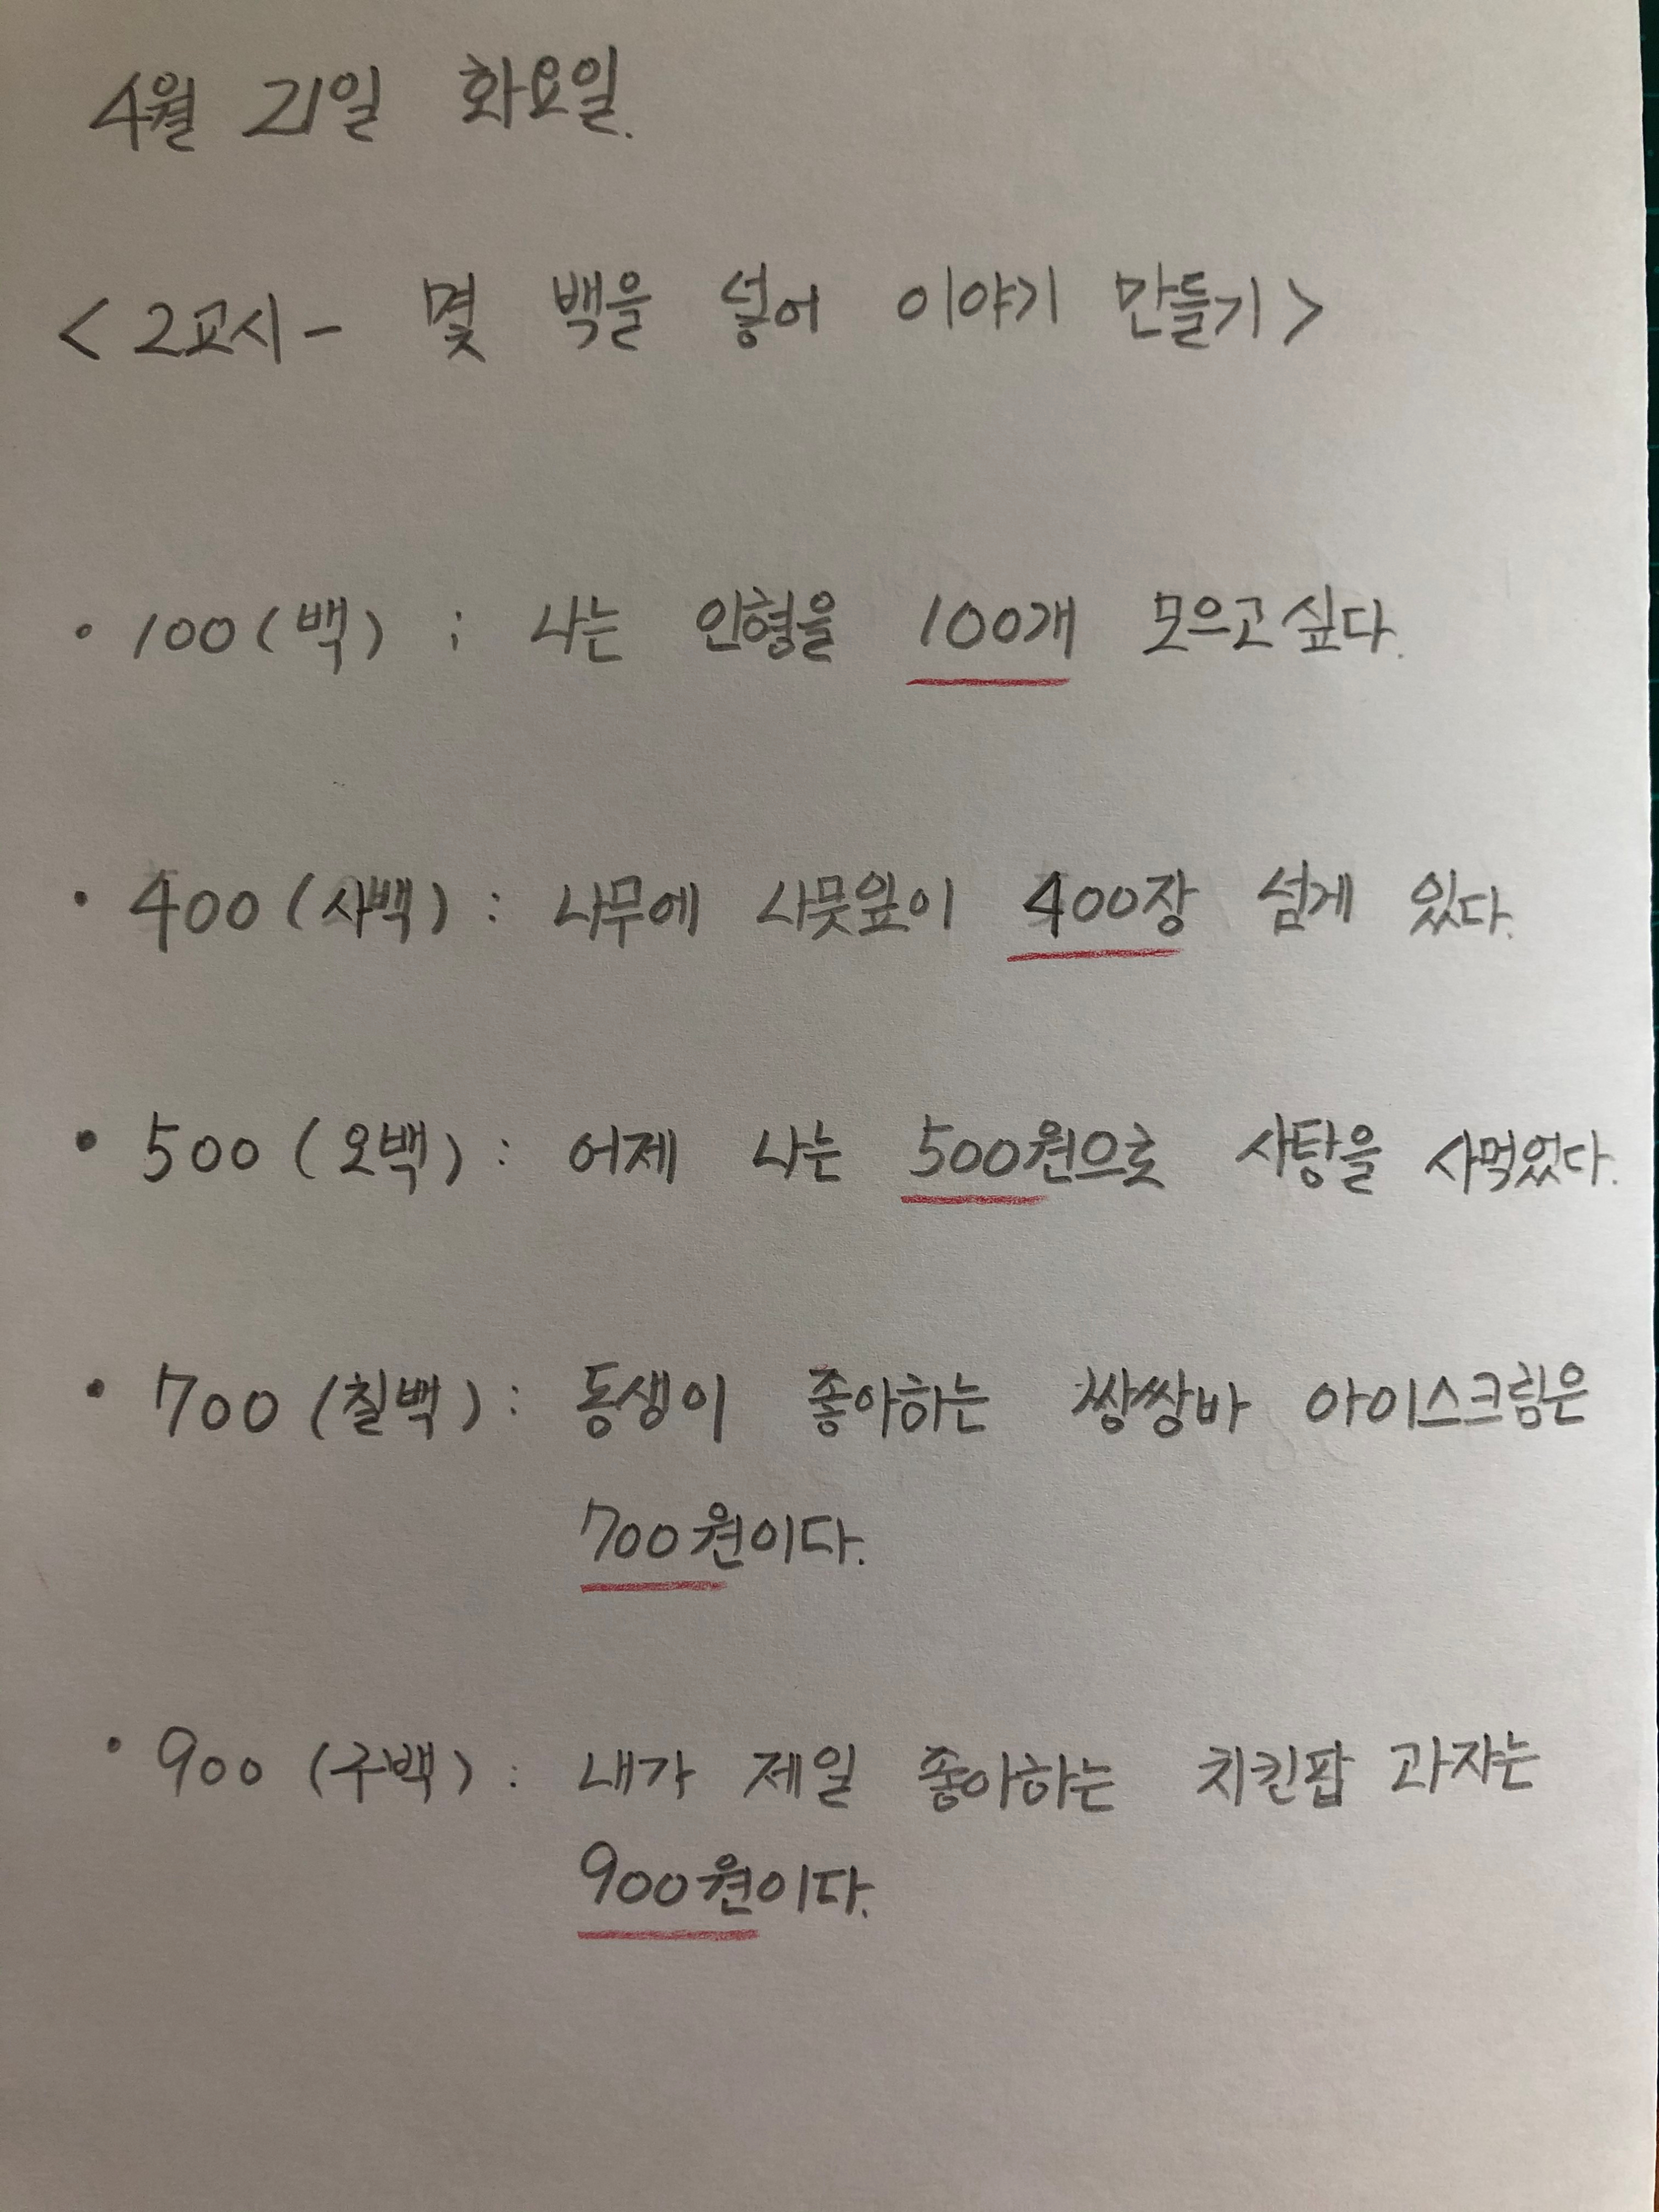 4월 21일 화요일.
<2교시- 몇 백을 넣어 이야기 만들기>
• 100(백) : 나는 인형을 100개 모으고싶다.
• 400(사백) : 나무에 나뭇잎이 400장 넘게 있다.
• 500(오백) : 어제 나는 500원으로 사탕을 사먹었다.
• 700(칠백) : 동생이 좋아하는 쌍쌍바 아이스크림은
700원이다.
• 900(구백) : 내가 제일 좋아하는 치킨팝 과자는
900원이다.